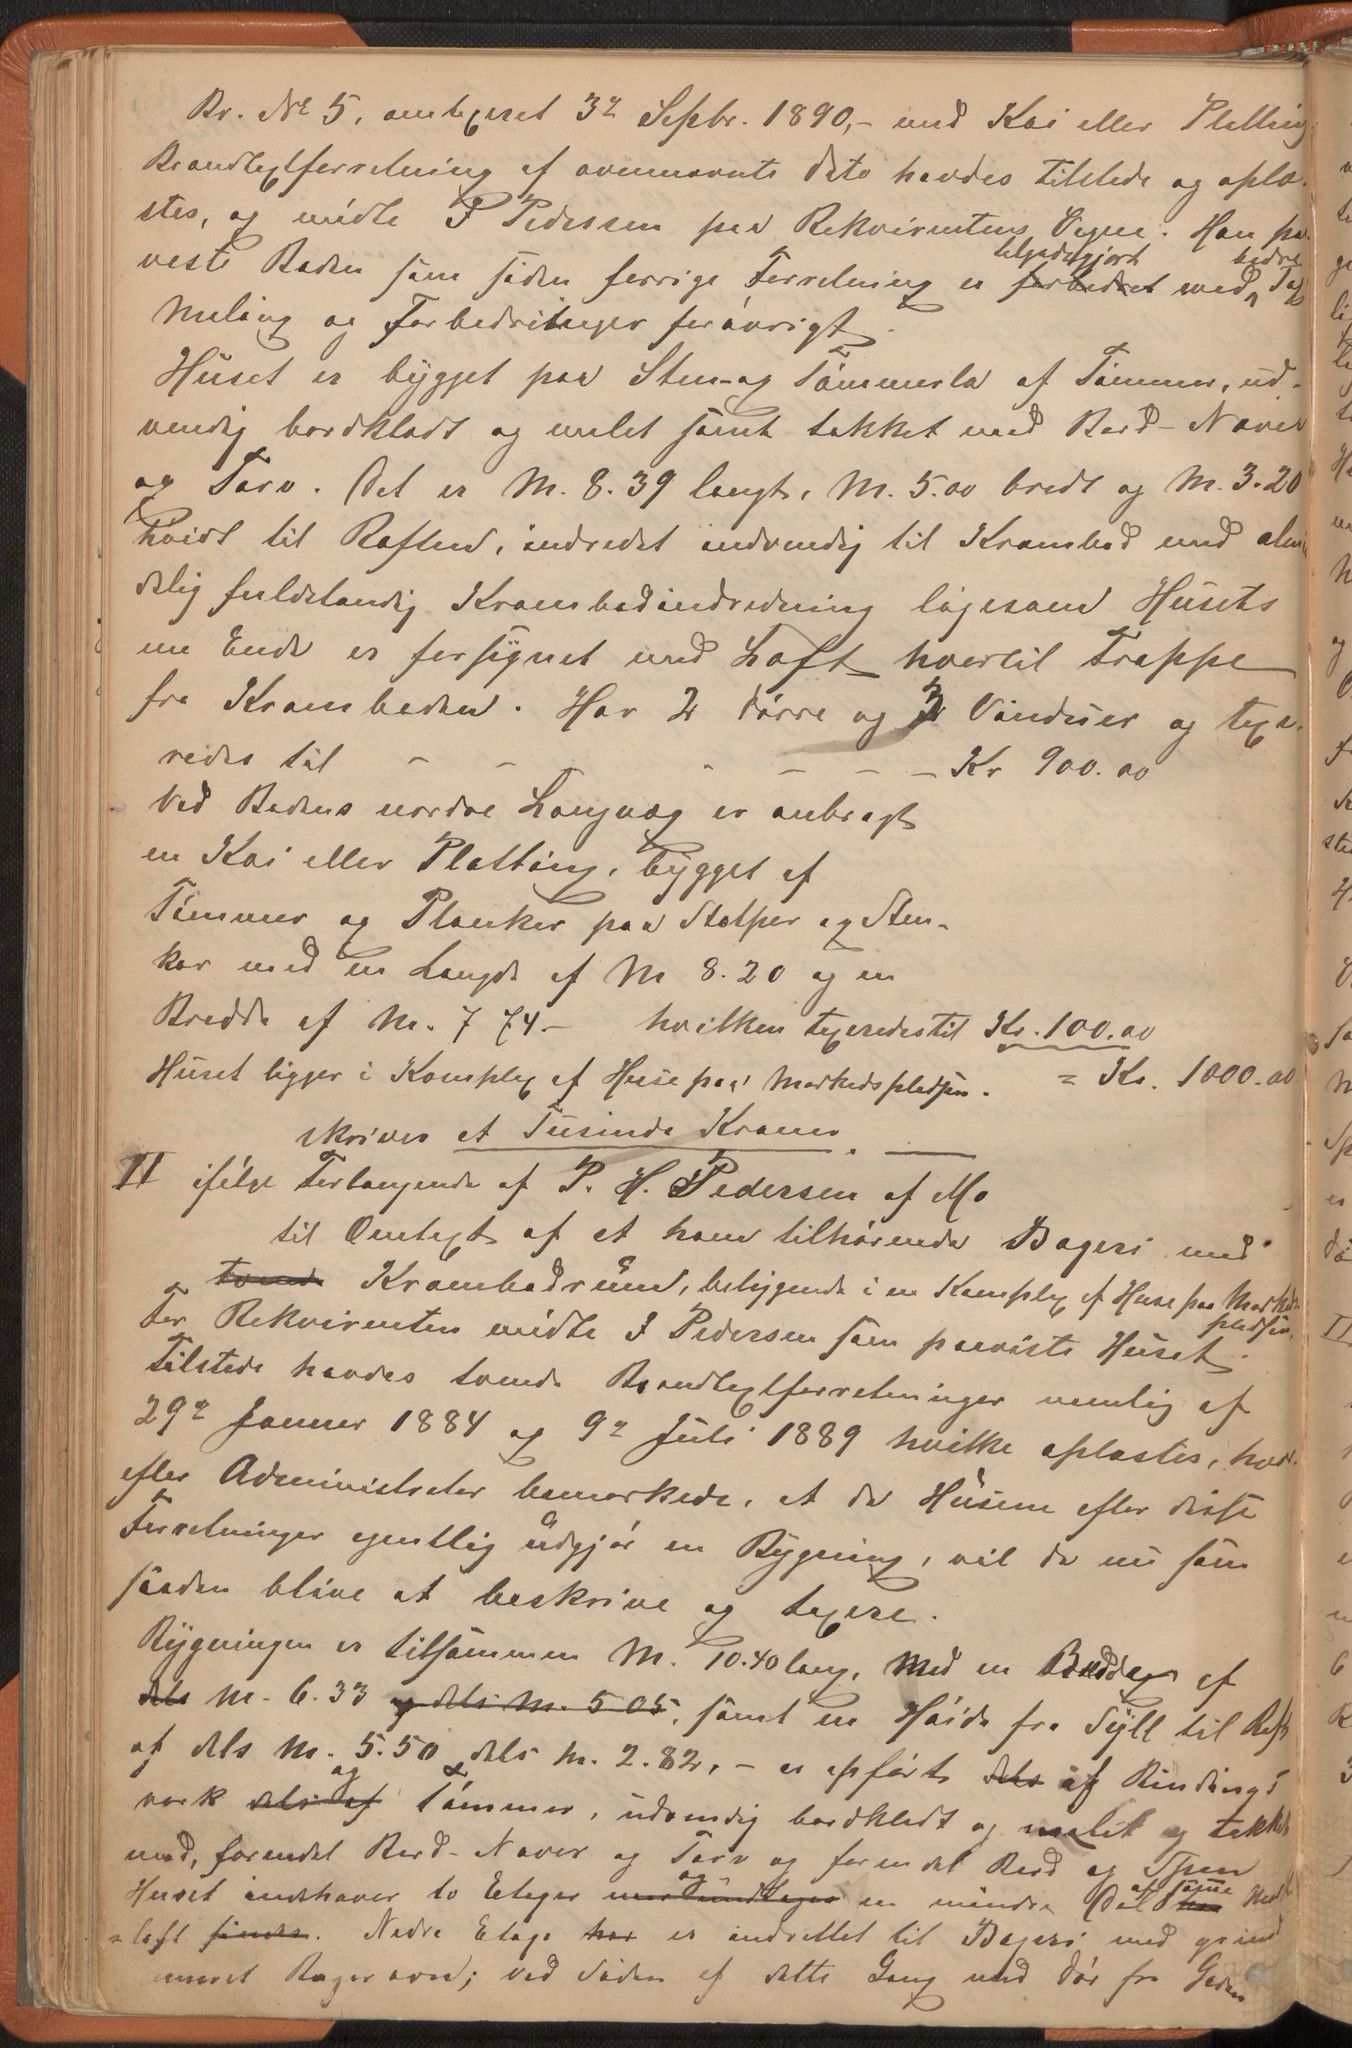 Br. № 5, omtaxeret 3die Septbr. 1890,- med Kai eller Platting
Brandtaxtforretning af ovennævnte dato havdes tilstede og oplæ-
stes, og mødte P Pedersen paa Rekvirentens Vegne. Han paa-
viste Boden som siden forrige Forretning er forbedret med Tag
tilgodegjort bedre
Maling og Forbedringer forøvrigt.
Huset er bygget paa Sten- og Tømmerla af Tømmer, ud-
vendig bordklædt og malet samt tækket med Bord- Næver
og Torv. Det er M. 8.39 langt, M. 5.00 bredt og M. 3.20
høidt til Raften, indredet indvendig til Krambod med almin
delig fuldstændig Krambodindredning ligesom Husets
ene Ende er forsynet med Loft hvortil Trappe
fra Kramboden. Har 2 Dørre og 3 Vinduer og taxe-
redes til - - - - - - Kr 900.00
Ved Bodens nordre Langvæg er anbragt
en Kai eller Platting, bygget af
Tømmer og Planker paa Stolper og Sten-
kar med en Længde af M 8.20 og en
Bredde af M. 7 74 - hvilken taxeredes til Kr. 100.00
Huset ligger i Komplex af Huse paa Markedspladsen. = Kr. 1000.00
skriver et Tusinde Kroner.
II ifølge Forlangende af P. H. Pedersen af Mo
til Omtaxt af et ham tilhørende Bageri med
tvende Krambodrum, beliggende i en Komplex af Huse paa Markeds
pladsen.
For Rekvirenten mødte I Pedersen som paaviste Huset.
Tilstede havdes tvende Brandtaxtforretninger nemlig af
29de Januar 1884 og 9de Juli 1889 hvilke oplæstes, hvor-
efter Administrator bemærkede, at da Husene efter disse
Forretninger egentlig udgjør en Bygning, vil de nu som
saadan blive at beskrive og taxere.
Bygningen er tilsammen M. 10.40 lang, med en Bredde af
dels M. 6.33 og dels M. 5 05, samt en Høide fra Syll til Raft
af dels M. 5.50 & dels M. 2.82, - er opført dels af Bindings
værk dels af og Tømmer, udvendig bordklædt og malet og tækket
med, forendel Bord- Næver og Torv og for en del Bord og Spon
Huset indehaver to Etager og en mindre Del af samme
sloft findes. Nedre Etage har er indrettet til Bageri med grund
muret Bagerovn; ved Siden af dette Gang med Dør fra Gaden